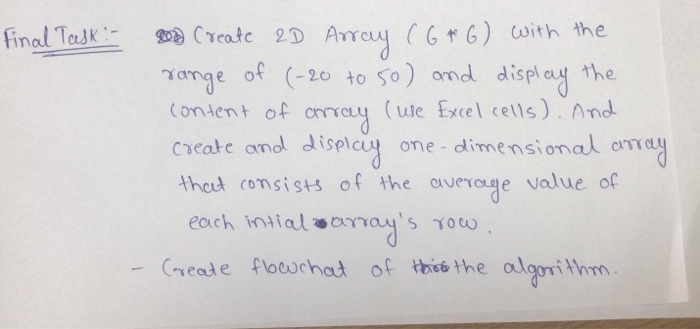 Final Task :- Create 2D Array (6 * 6) with the
range of (-20 to 50) and display the
content of array (use Excel cells). And
create and display one-dimensional array
that consists of the average value of
each intial array's row.
- Create flowchat of the algorithm.